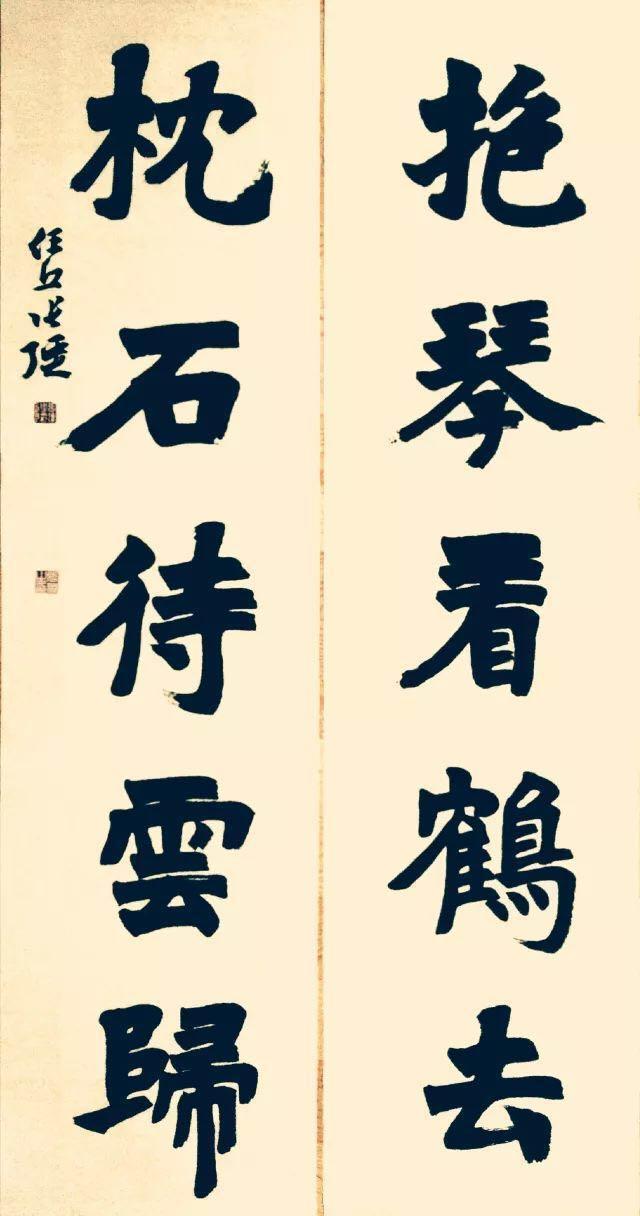 抱琴看鶴去
枕石待雲歸
任丘